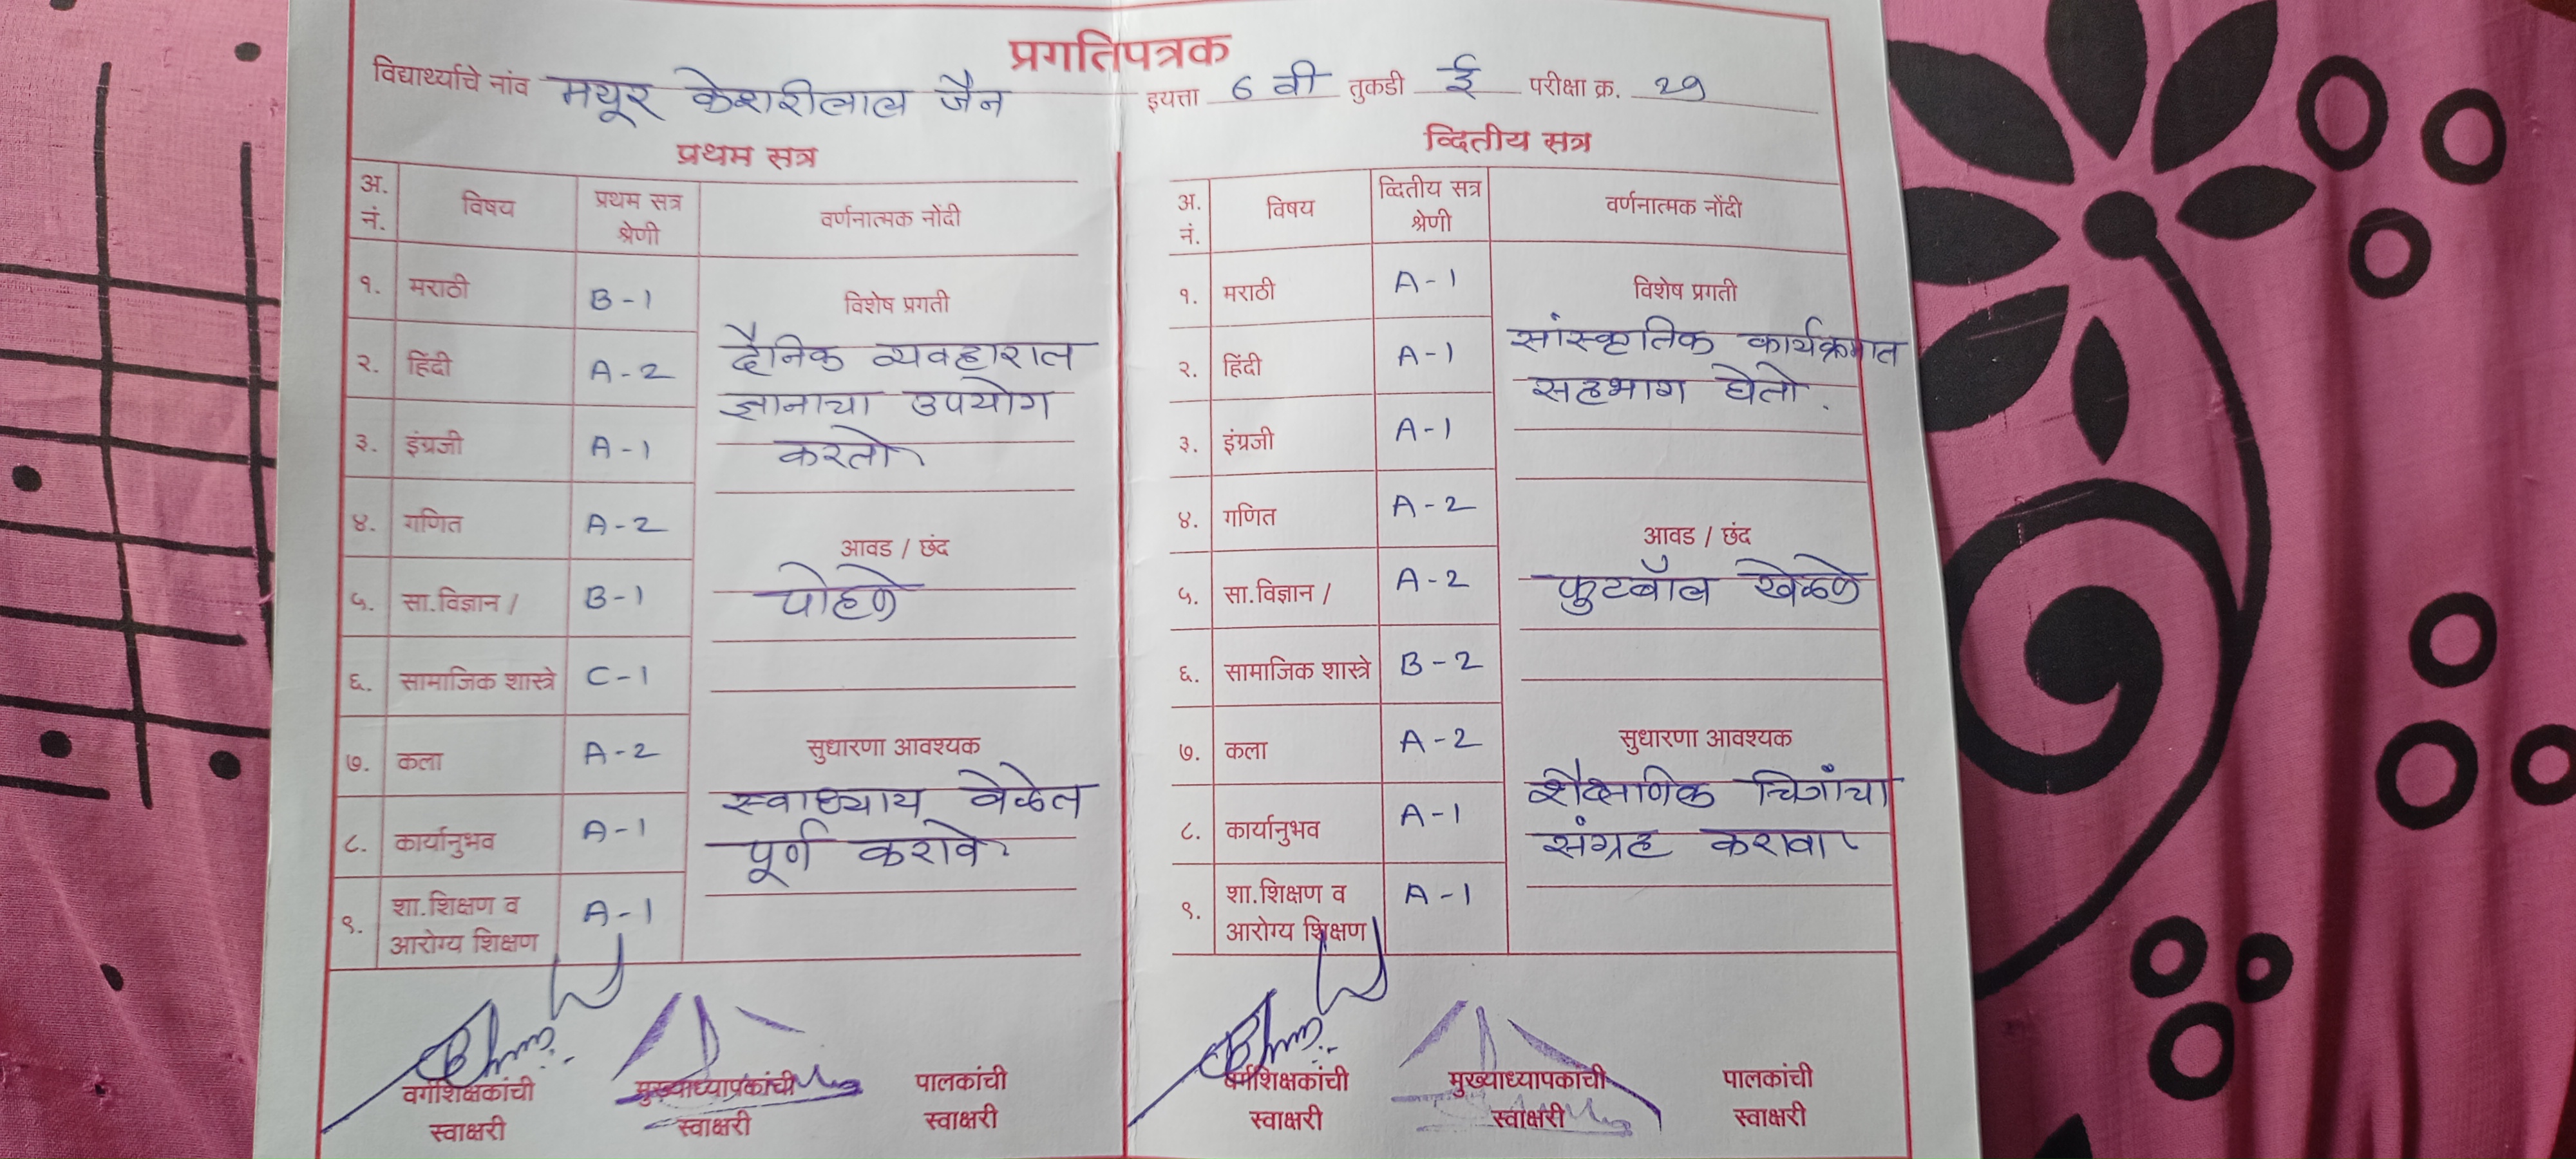 प्रगतिपत्रक
विद्यार्थ्याचे नांव मयूर केशरीलाल जैन इयत्ता 6 वी तुकडी ई परीक्षा क्र. 29
प्रथम सत्र
अ. नं. विषय प्रथम सत्र श्रेणी वर्णनात्मक नोंदी
१. मराठी B-1
२. हिंदी A-2
३. इंग्रजी A-1
४. गणित A-2
५. सा.विज्ञान / B-1
६. सामाजिक शास्त्रे C-1
७. कला A-2
८. कार्यानुभव A-1
९. शा.शिक्षण व आरोग्य शिक्षण A-1
विशेष प्रगती
दैनिक व्यवहारात
ज्ञानाचा उपयोग
करतो.
आवड / छंद
पोहणे
सुधारणा आवश्यक
स्वाध्याय वेळेत
पूर्ण करावे.
वर्गशिक्षकांची स्वाक्षरी
मुख्याध्यापकांची स्वाक्षरी
पालकांची स्वाक्षरी
व्दितीय सत्र
अ. नं. विषय व्दितीय सत्र श्रेणी वर्णनात्मक नोंदी
१. मराठी A-1
२. हिंदी A-1
३. इंग्रजी A-1
४. गणित A-2
५. सा.विज्ञान / A-2
६. सामाजिक शास्त्रे B-2
७. कला A-2
८. कार्यानुभव A-1
९. शा.शिक्षण व आरोग्य शिक्षण A-1
विशेष प्रगती
सांस्कृतिक कार्यक्रमात
सहभाग घेतो.
आवड / छंद
फुटबॉल खेळणे
सुधारणा आवश्यक
शैक्षणिक चित्रांचा
संग्रह करावा.
वर्गशिक्षकांची स्वाक्षरी
मुख्याध्यापकांची स्वाक्षरी
पालकांची स्वाक्षरी